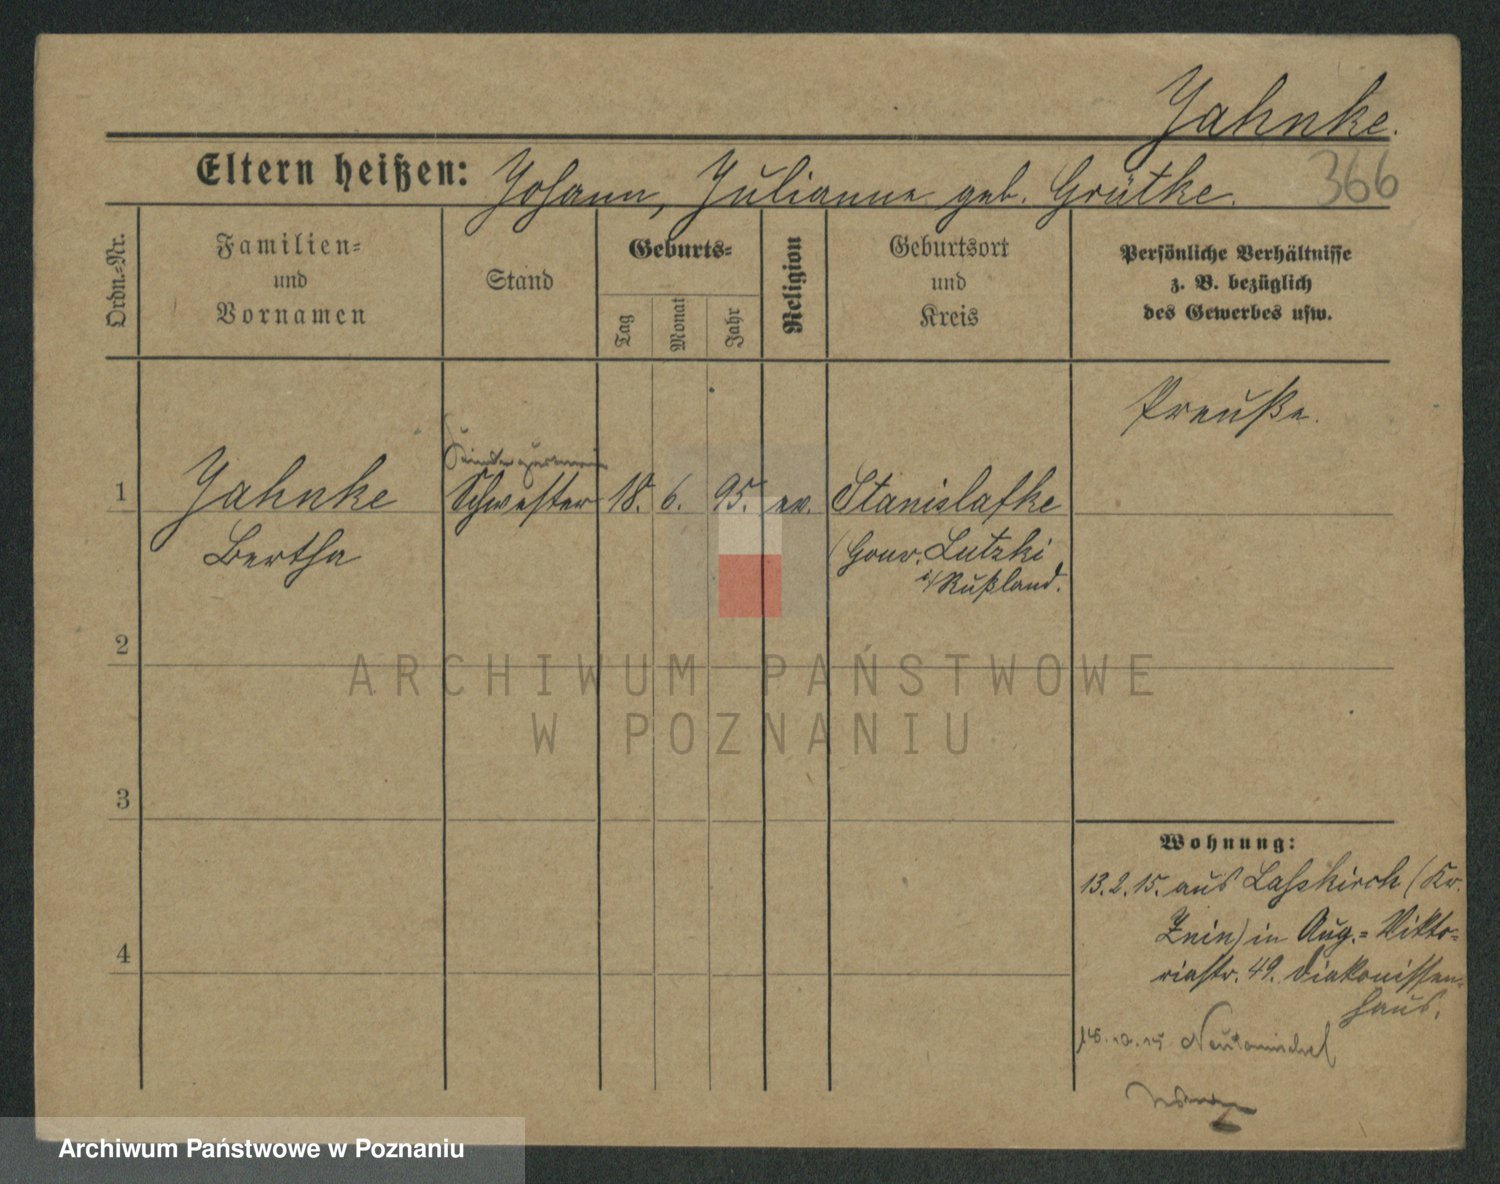 Jahnke.
Eltern heißen: Johann, Julianne geb. Grütke.
366
Ordn.=Nr.
Familien=
und
Vornamen
Stand
Geburts=
Tag
Monat
Jahr
Religion
Geburtsort
und
Kreis
Persönliche Verhältnisse
z. B. bezüglich
des Gewerbes usw.
Preuße.
1 Jahnke Schwester 18. 6. 95. ev. Stanislafke
Bertha
(Gouv. Lutzki
i/Rußland.
2
ARCHIWUM PAŃSTWOWE
W POZNANIU
3
Wohnung:
13.2.15. aus Laßkirch (Kr.
Znin) in Aug.=Vikto=
riastr. 49. Diakonissen=
haus.
4
Neutomischel
Archiwum Państwowe w Poznaniu